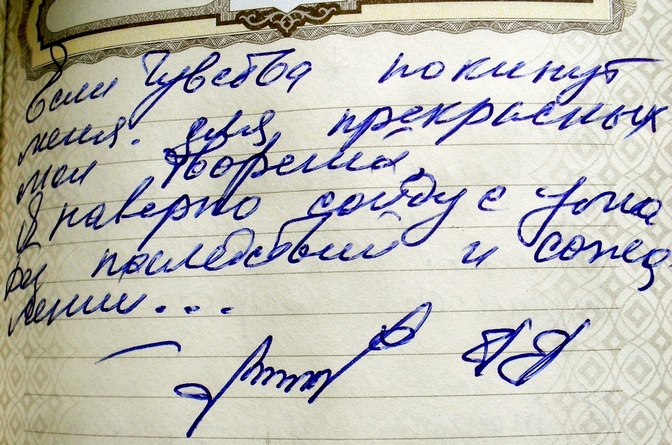 Если чувства покинут
меня. для прекрасных
мои творений,
Я наверно сойду с ума
без последствий и сожа
лении...